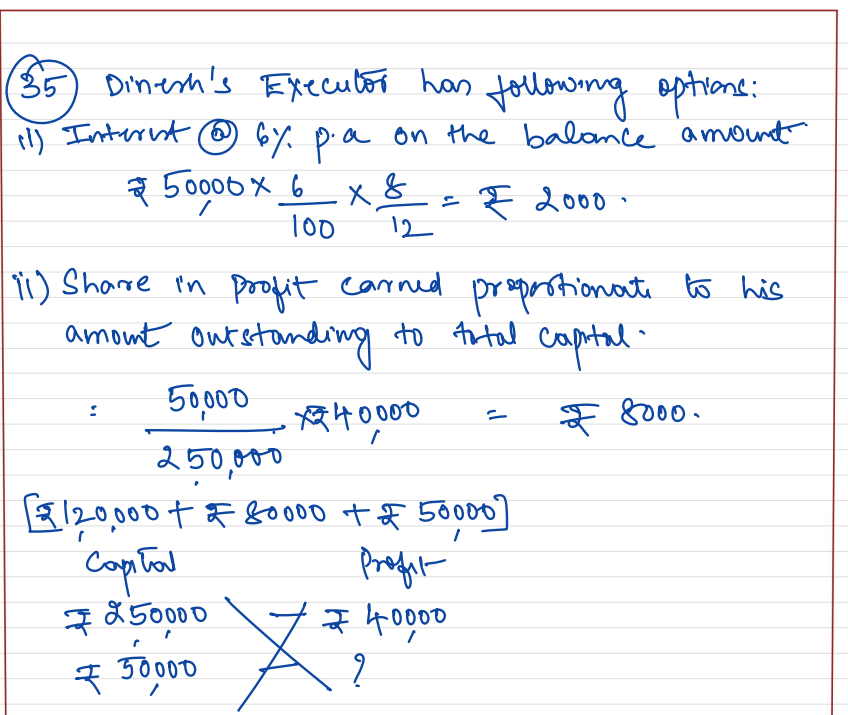 35 Dinesh's Executor has following options:
i) Interest @ 6% p.a on the balance amount
₹ 50,000 × 6/100 × 8/12 = ₹ 2000.
ii) Share in profit earned proportionate to his
amount outstanding to total capital.
= 50,000/250,000 × ₹40,000 = ₹ 8000.
[₹120,000 + ₹ 80000 + ₹ 50,000]
Capital Profit
₹ 250,000 ₹ 40,000
₹ 50,000 ?